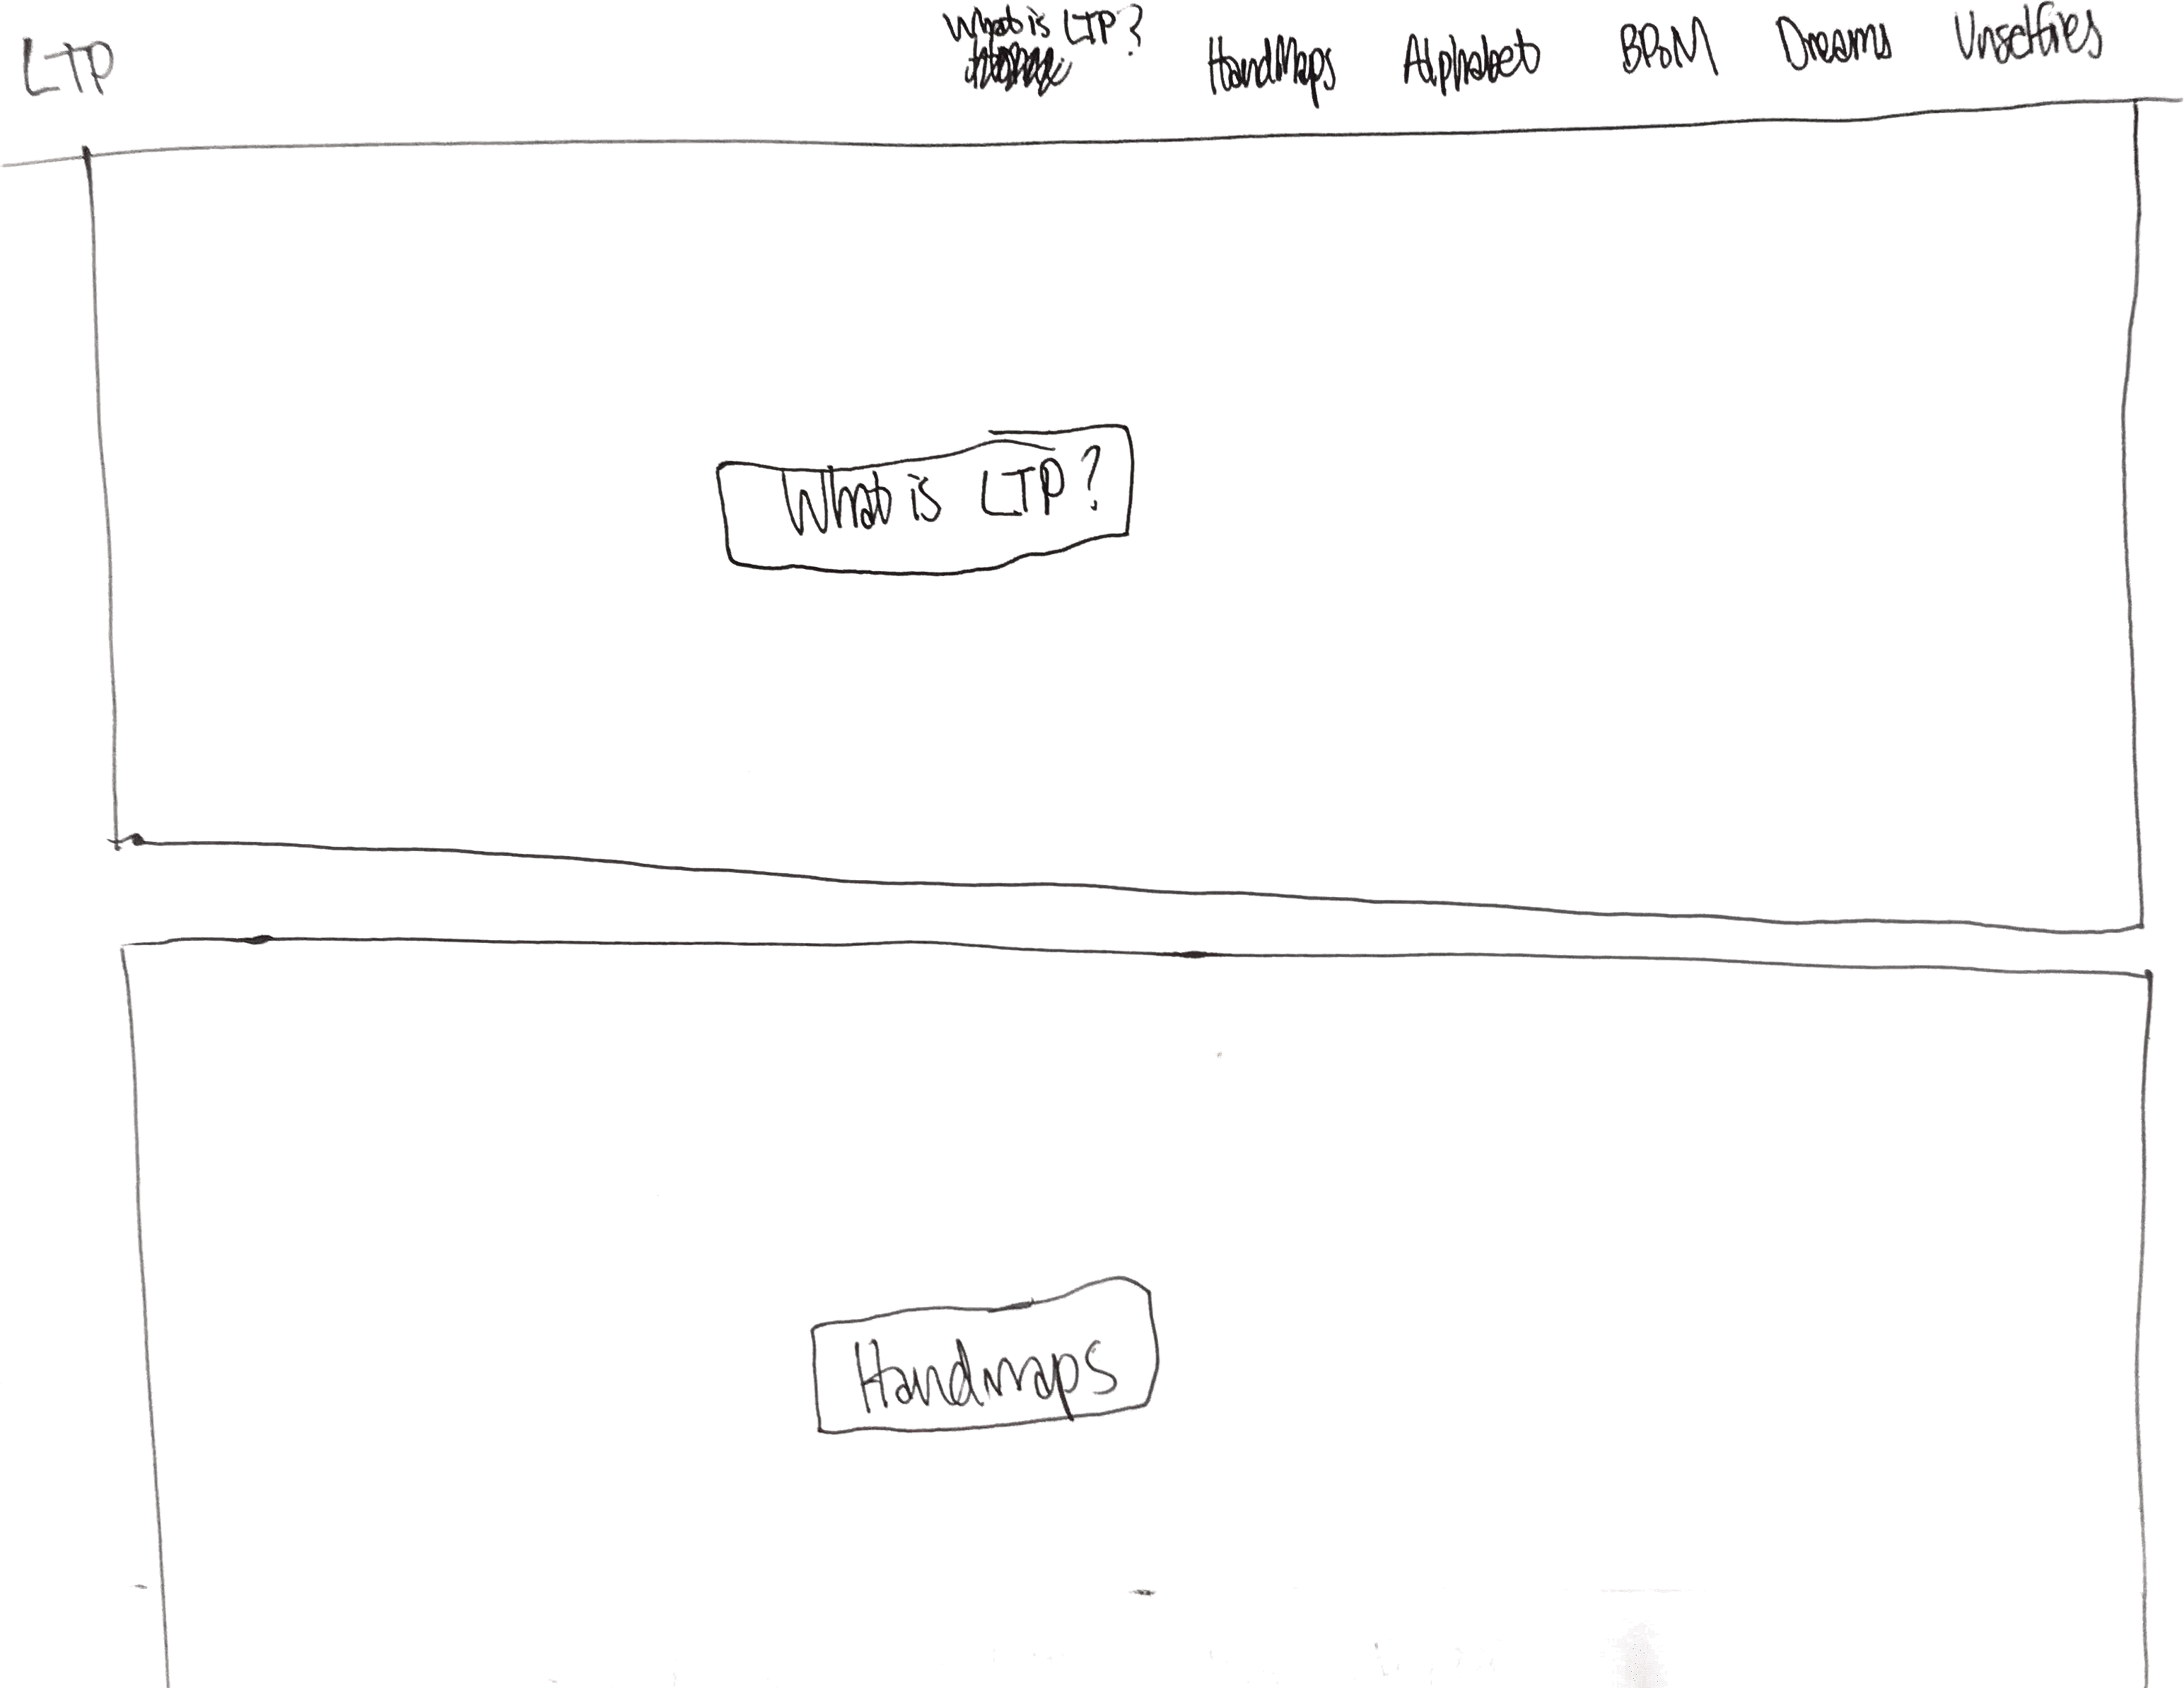 LTP
What is LTP?
HandMaps Alphabet BPoM Dreams Unselfies
What is LTP?
Handmaps